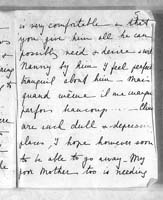 is very comfortable & that
you give him all he can
possibly need & desire and
Nanny by him I feel perfect
tranquil about him – mais
quand même il me manque
parfois beaucoup – these
are such dull & depressing
places, I hope however soon
to be able to go away. My
poor Mother too is needing